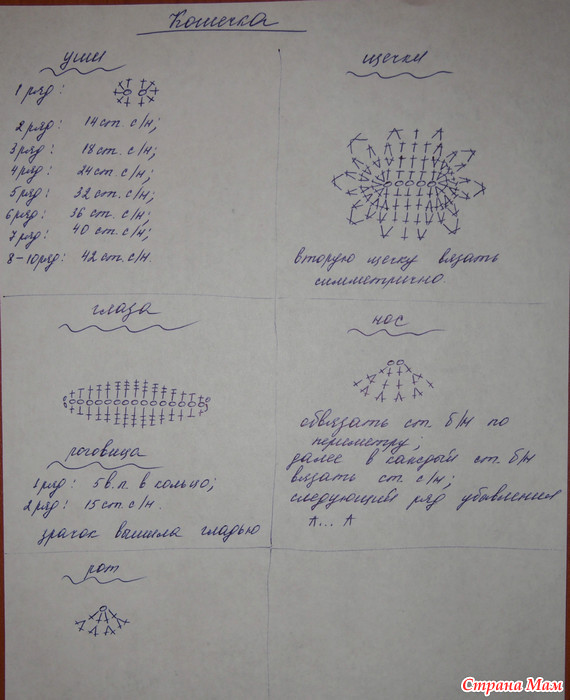 Кошечка
уши
1 ряд:
2 ряд: 14 ст. с/н;
3 ряд: 18 ст. с/н;
4 ряд: 24 ст. с/н;
5 ряд: 32 ст. с/н;
6 ряд: 36 ст. с/н;
7 ряд: 40 ст. с/н;
8-10 ряд: 42 ст. с/н.
щечки
вторую щечку вязать
симметрично.
глаза
роговица
1 ряд: 5 в.п. в кольцо;
2 ряд: 15 ст. с/н.
зрачок вышила гладью
нос
обвязать ст. б/н по
периметру;
далее в каждый ст. б/н
вязать ст. с/н;
следующий ряд убавления
А... А
рот
Страна Мам